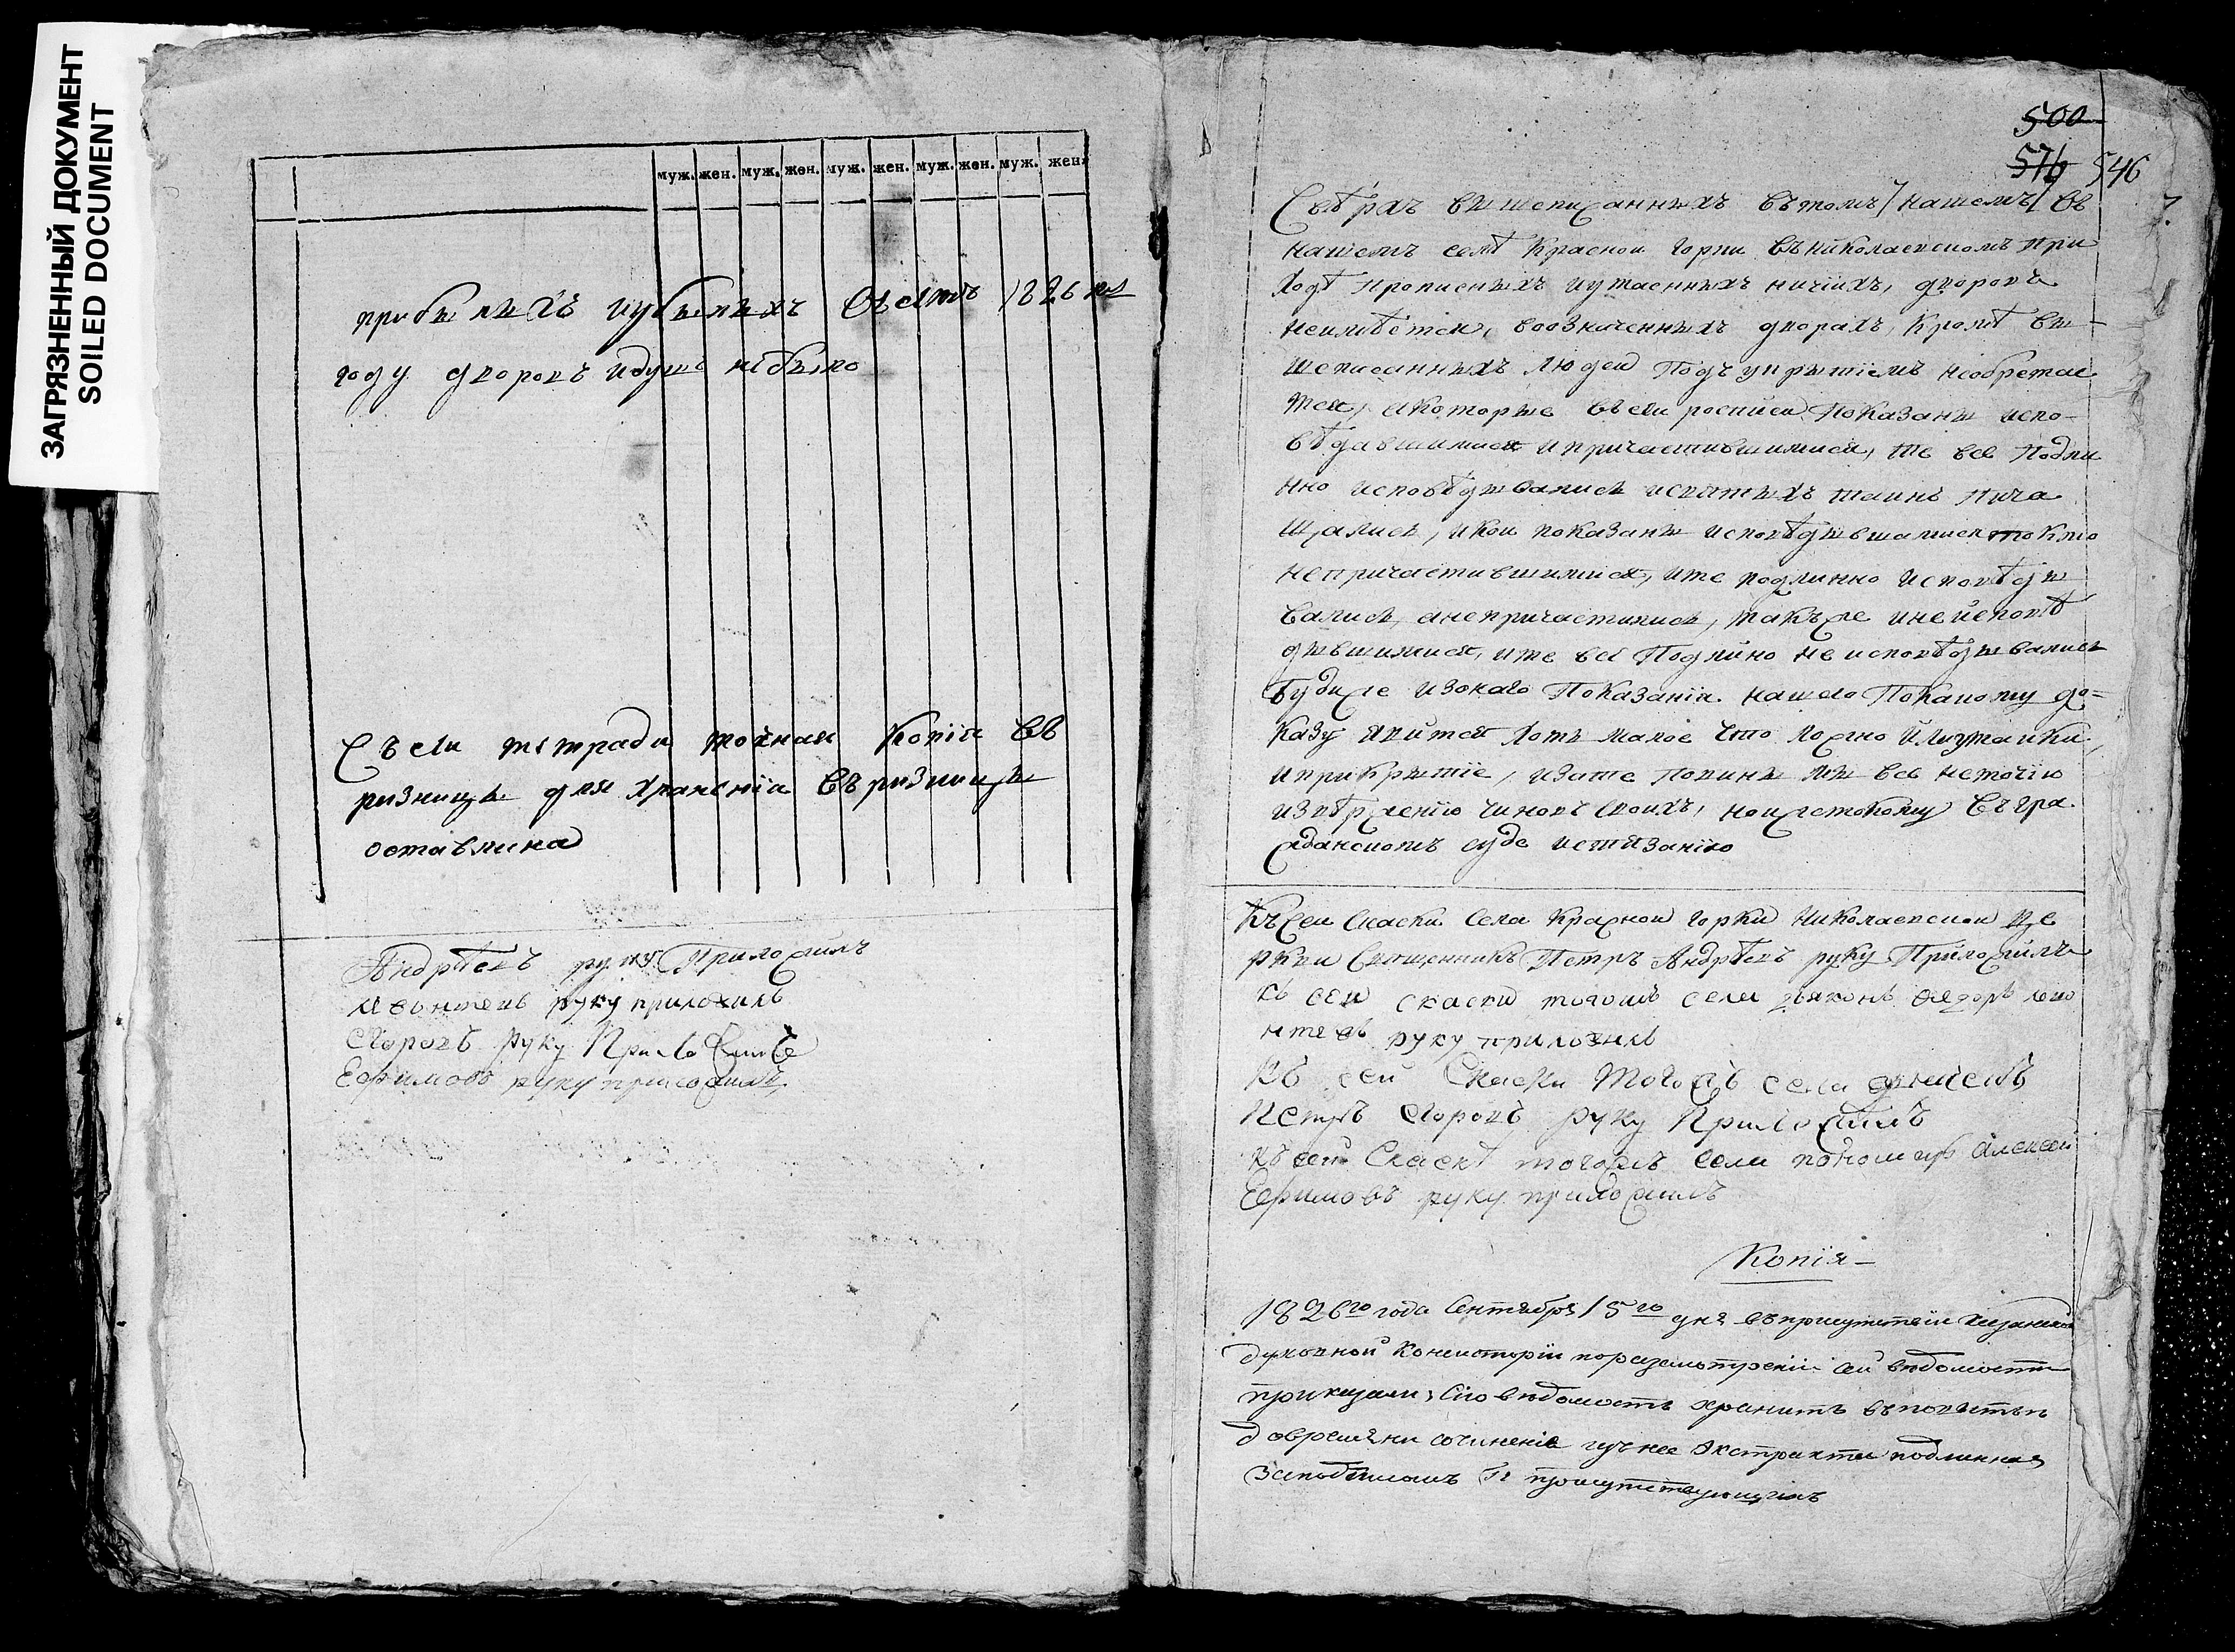 ЗАГРЯЗНЕННЫЙ ДОКУМЕНТ
SOILED DOCUMENT
муж. жен. муж. жен. муж. жен. муж. жен. муж. жен.
прибылыхъ иубылыхъ Всемъ 1826 мъ
году дворовъ идушъ небыло
Съ сеи тетради точная Копія въ
ризницы для храненія въ ризницы
оставлина
Андрѣевъ руку Приложилъ
Леонтевъ руку приложилъ
Егоровъ Руку Приложилъ
Ефимовъ руку приложилъ
500
576 546
7.
Сверхъ вышеписанныхъ въ томъ / нашемъ / въ
нашемъ селѣ Красной горки въ николаевскомъ при
ходѣ прописныхъ иутаенныхъ ничіихъ, дворовъ
неимѣется, воозначенныхъ дворахъ, Кромѣ вы-
шеписанныхъ людей Подъ укрытіемъ необретае
тся, а которые въ сеи росписи Показаны испо-
вѣдавшимися и причастившимися, те все Подли
нно исповѣдывались исвятыхъ таинъ прича
щались, икои показаны исповѣдывшамися токмо
непричастившимися, ите подлинно исповѣды
вались, анепричастились, такъже инеисповѣ
дывшимися, ите всѣ Подлинно не исповѣдывались
буди же изонаго Показанія нашего Покакому до=
казу явится хотъ малое что ложно илиутайки,
иприкрытіе, изате повины мы все неточію
извѣржению чиновъ своихъ, ноижестокому въ гра
жданскомъ суде истязанію
Къ сеи Скаски Села Красной горки Николаевскои це
ркви Священникъ Петръ Андрѣевъ руку Приложилъ
къ сеи скаски тогожъ села дьяконъ федоръ лео
нтевъ руку приложилъ
Къ сеи Скаски Тогожъ села дьячекъ
Петръ Егоровъ Руку Приложилъ
къ сей Скаскѣ тогожъ села пономарь Алексеи
Ефимовъ руку приложилъ
Копія
1826го года Сентября 15го дня въ присутствіи Казанской
духовной Консисторіи по разсмотреніи сей вѣдомости
приказали, Сію вѣдомость хранить въ повытьи
до времяни сочиненія изъ нее Экстракта подлинная
За подписомъ Гг присутствующихъ